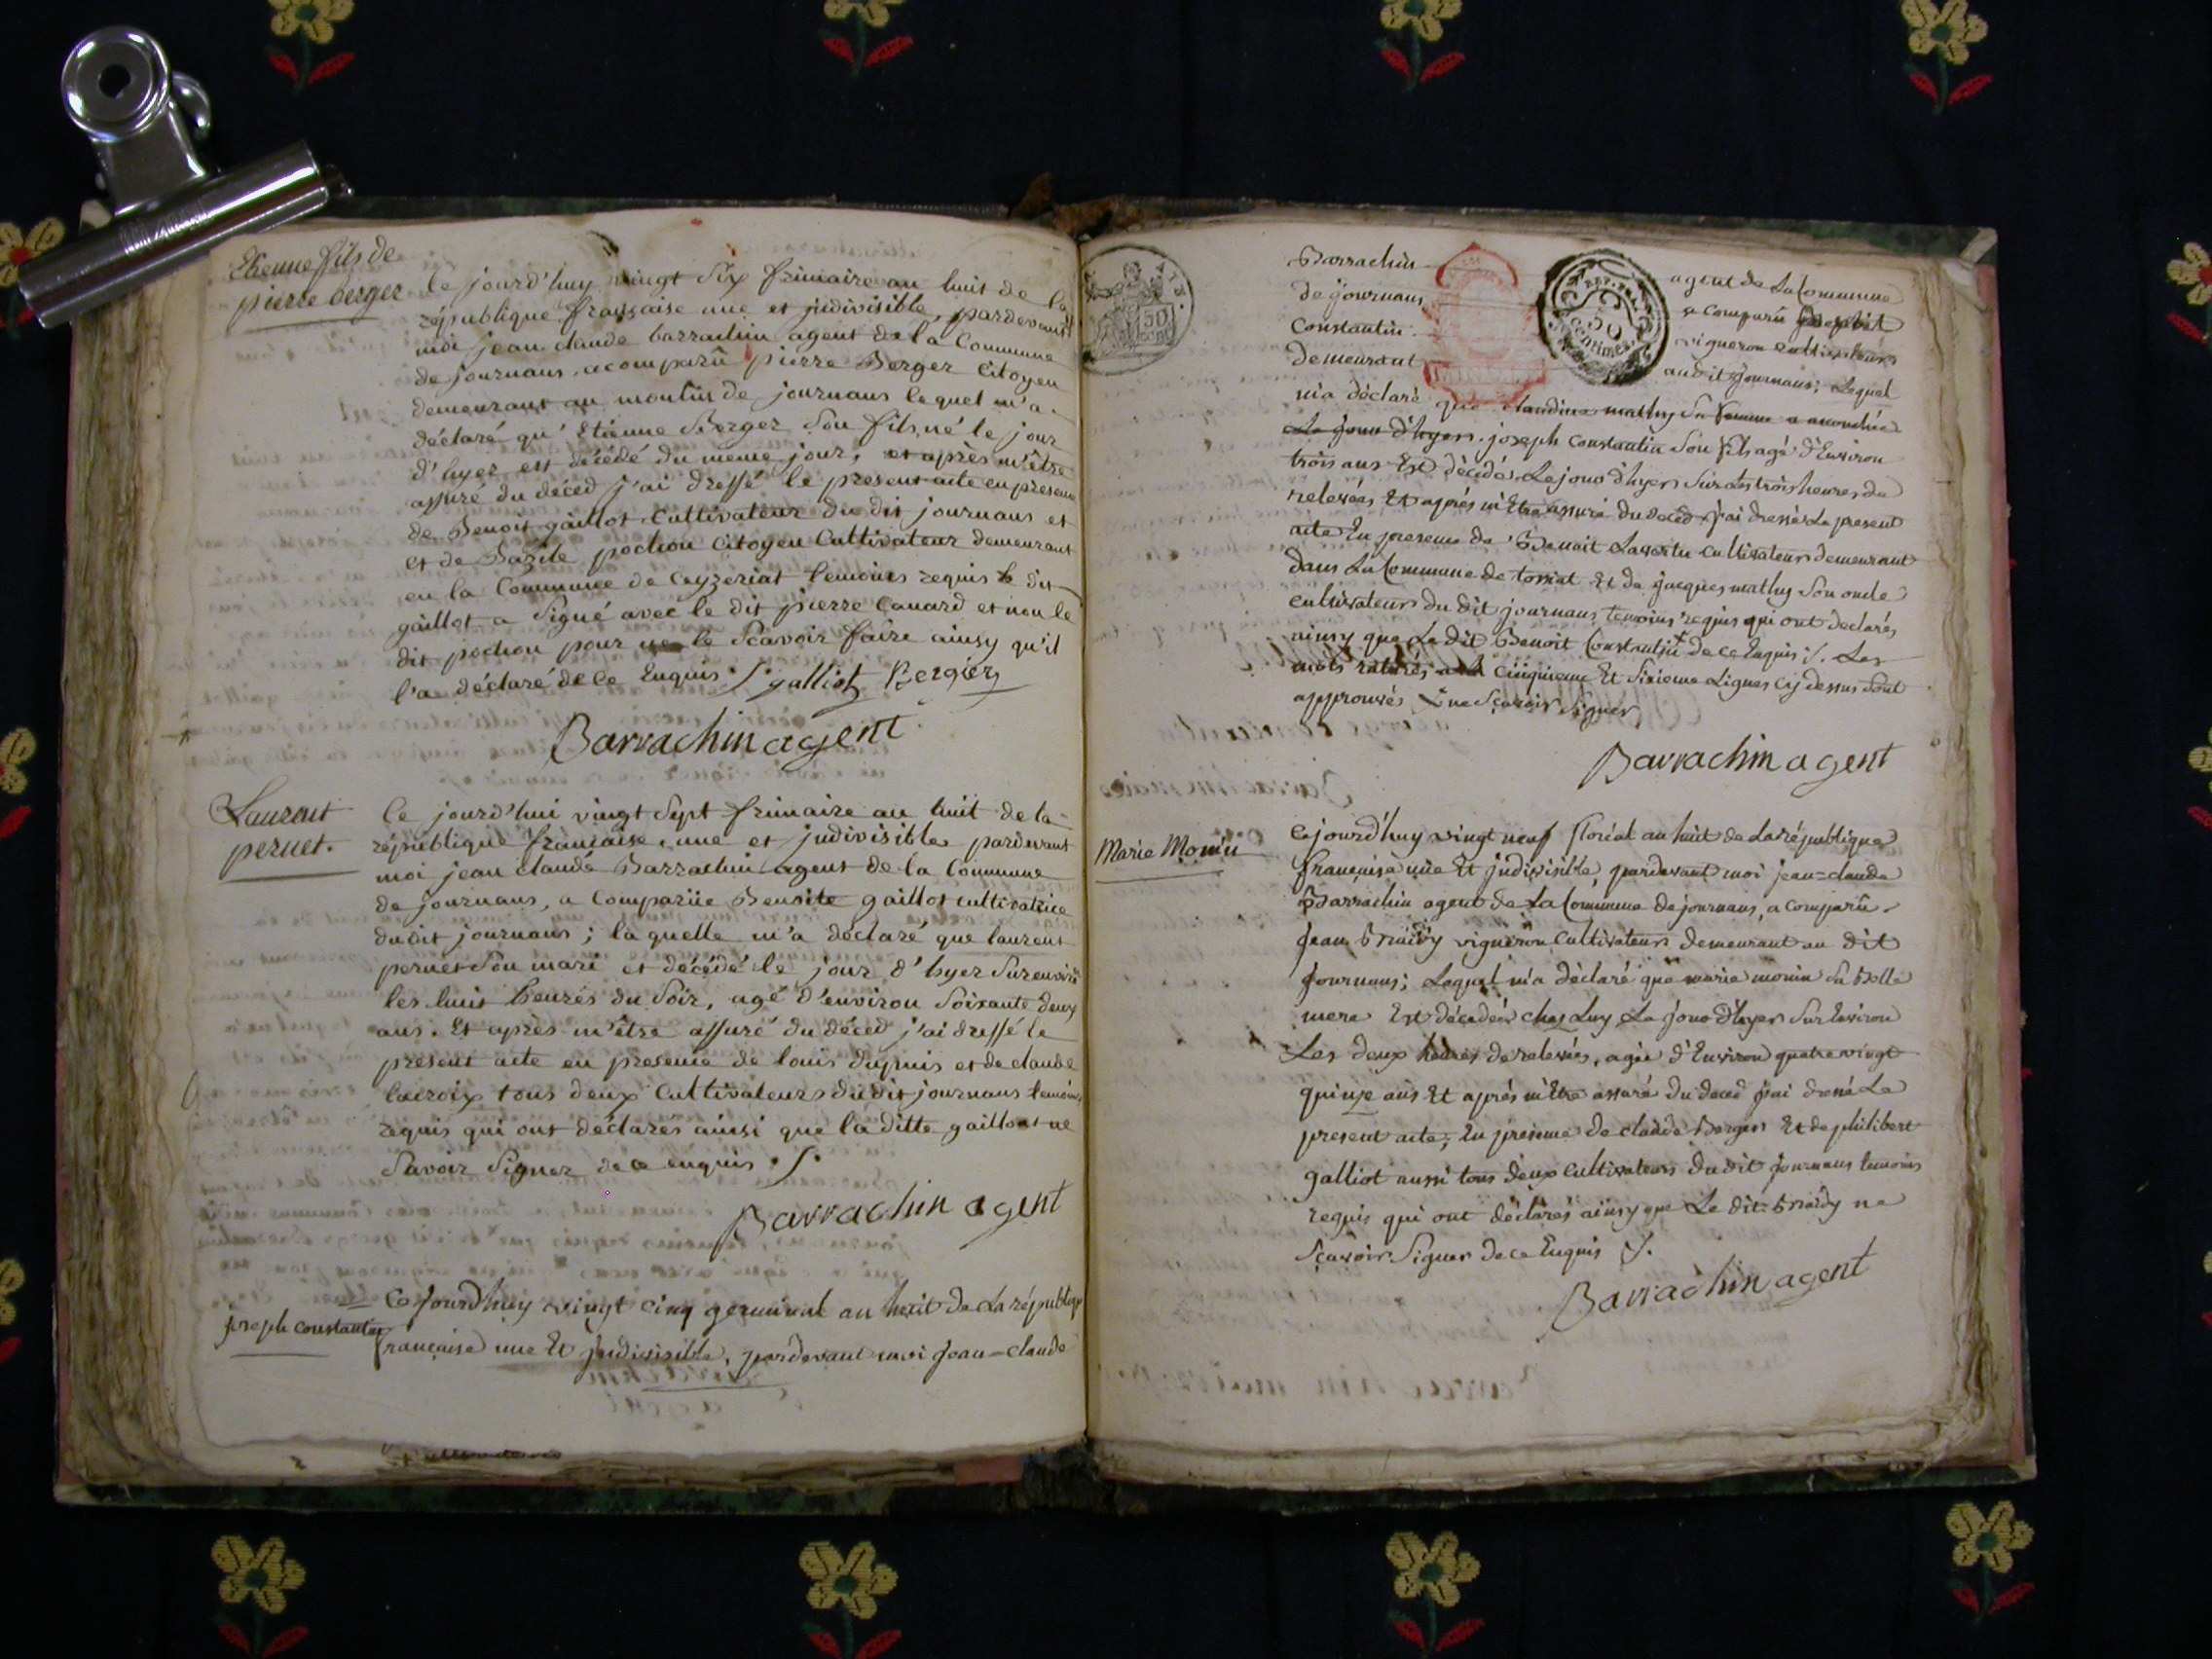 Etienne fils de
pierre berger
Ce jourd'huy vingt six frimaire an huit de la
république française une et jndivisible, pardevant
moi jean claude barrachin agent de la Commune
de journans, a comparû pierre Berger Citoyen
demeurant au moulin de journans lequel m'a
déclaré qu'Etienne Berger son fils, né le jour
d'hyer est décédé du meme jour, et après m'être
assuré du déced j'ai dressé le present acte en presence
de Benoit gaillot Cultivateur du dit journans et
et de Bazile pochon Citoyen Cultivateur demeurant
en la Commune de Ceyzeriat temoins requis le dit
gaillot a signé avec le dit pierre Canard et non le
dit pochon pour ne le Scavoir faire ainsy qu'il
l'a déclaré de ce Enquis ./. galliot Bergier
Barrachin agent
Laurent
pernet.
Ce jourd'hui vingt Sept frimaire an huit de la
république française, une et jndivisible pardevant
moi jean claude Barrachin agent de la Commune
de journans, a Comparüe Benoite gaillot cultivatrice
dudit journans; laquelle m'a déclaré que laurent
pernet Son mari et décédé le jour d'hyer Sur environ
les huit heures du Soir, agé d'environ Soixante deux
ans. Et après m'être assuré du déced j'ai dressé le
présent acte en presence de louis dupuis et de claude
lacroix tous deux Cultivateurs dudit journans temoins
requis qui ont déclarés ainsi que la ditte gaillot ne
Savoir Signer de ce enquis ./.
Barrachin agent
joseph constantin
Ce jourd'huy vingt cinq germinal an huit de La républiq
française une Et jndivisible, pardevant moi jean=claude
Barrachin agent de La Commune
de journans a comparû Benoit
Constantin vigneron cultivateur
demeurant audit journans; Lequel
m'a déclaré que claudine mathy sa femme a accouchée
Le jour d'hyer. joseph constantin Son fils agé d'Environ
trois ans Est décédé, Le jour d'hyer Sur Les trois heures de
relevées Et après m'Etre assuré du déced j'ai dressé Le present
acte En presence de Benoit Lavertu cultivateur demeurant
dans La Commune de tossiat Et de jacques mathy Son oncle
cultivateur du dit journans temoins requis qui ont déclarés
ainsy que Le dit Benoit Constantin + de ce Enquis ./. Les
mots raturés a La Cinquieme Et Sixieme Lignes cy dessus Sont
approuvés + ne Sçavoir Signer
Barrachin agent
Marie Monin
Cejourd'huy vingt neuf floréal an huit de La république
française une Et jndivisible, pardevant moi jean=claude
Barrachin agent de La Commune de journans, a comparû
jean vigneron Cultivateur demeurant au dit
journans; Lequel m'a déclaré que marie monin Sa Belle
mere Est décédée chez Luy Le jour d'hyer Sur Environ
Les deux heures de relevées, agée d'Environ quatre vingt
quinze ans Et après m'Etre assuré du deced j'ai dressé Le
present acte, En presence de claude Berger Et de philibert
galliot aussi tous deux cultivateurs dudit journans temoins
requis qui ont déclarés ainsy que Le dit ne
Sçavoir Signer de ce Enquis ./.
Barrachin agent
REP. FRA.
50
Centimes